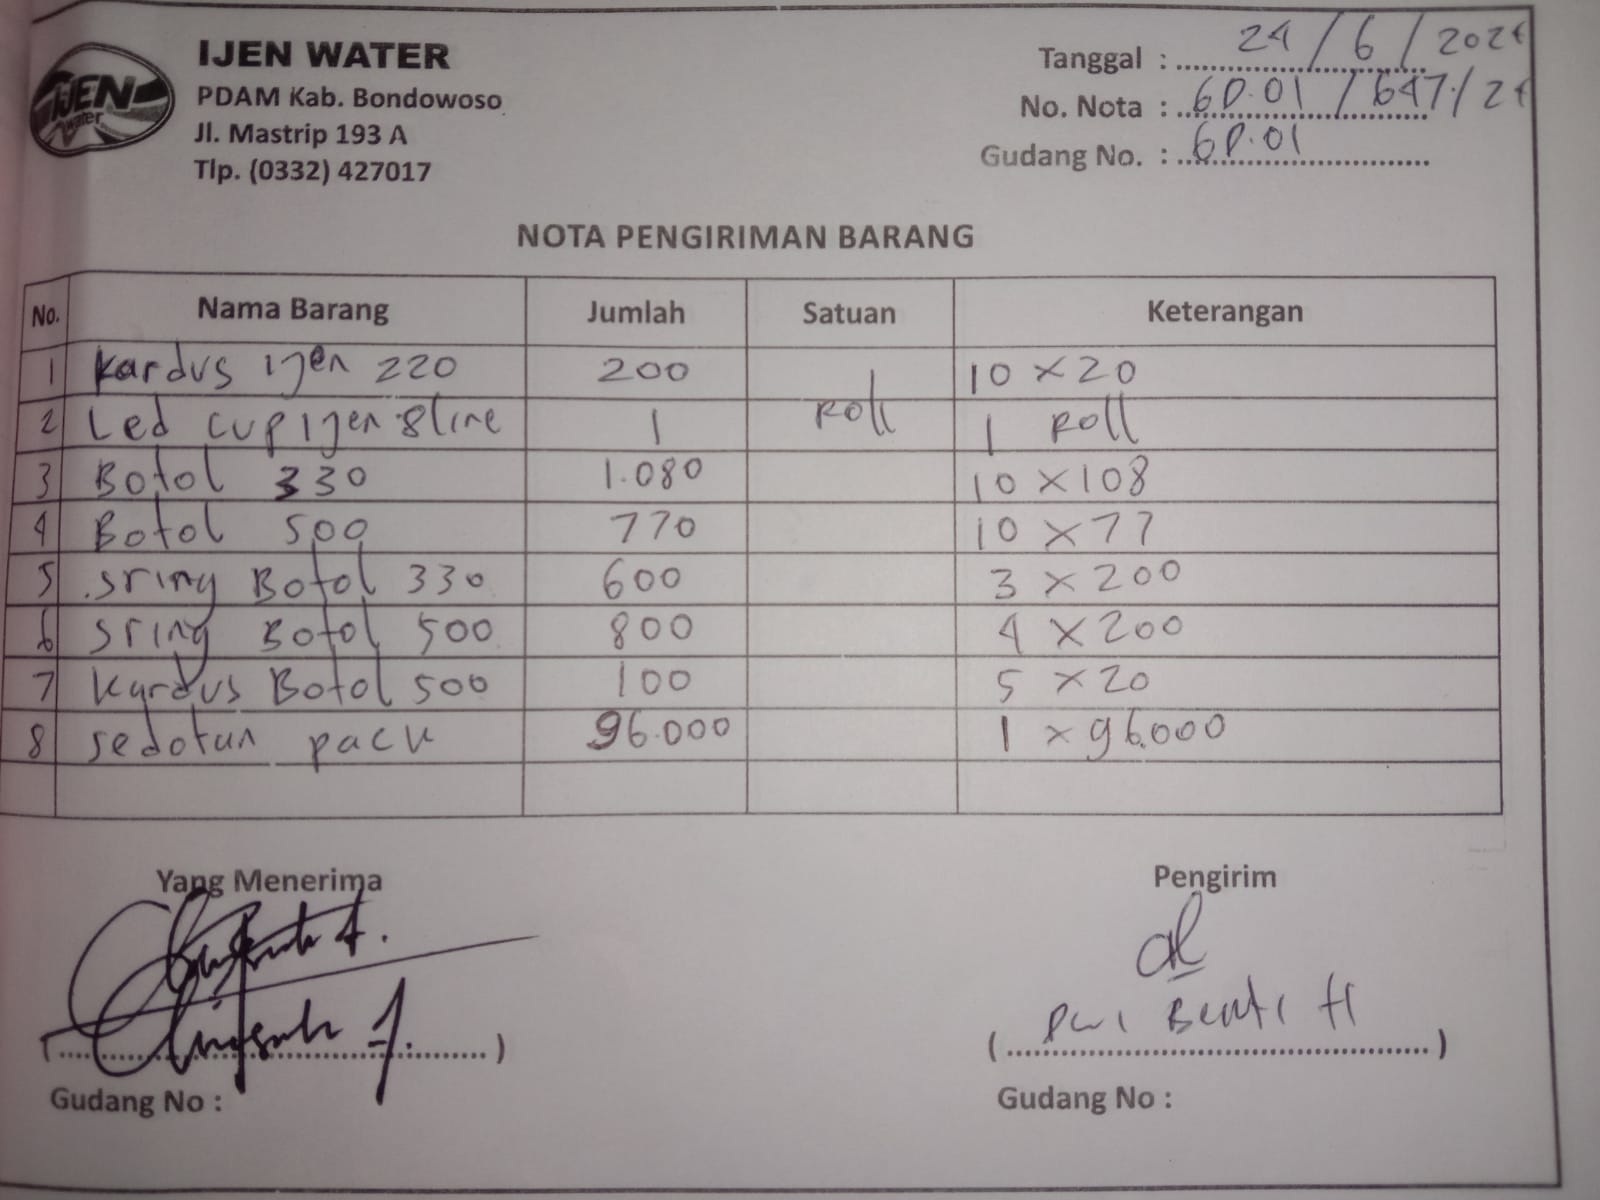 IJEN WATER
PDAM Kab. Bondowoso
Jl. Mastrip 193 A
Tlp. (0332) 427017
IJEN
water
Tanggal : 24 / 6 / 2024
No. Nota : 6D.01 / 647 / 24
Gudang No. : 6D.01
NOTA PENGIRIMAN BARANG
No. Nama Barang Jumlah Satuan Keterangan
1 Kardus ijen 220 200 10 x 20
2 Led cup ijen 8 line 1 Roll 1 Roll
3 Botol 330 1.080 10 x 108
4 Botol 500 770 10 x 77
5 sring Botol 330 600 3 x 200
6 sring Botol 500 800 4 x 200
7 Kardus Botol 500 100 5 x 20
8 sedotan pack 96.000 1 x 96.000
Yang Menerima Pengirim
(.....) (.....)
Gudang No : Gudang No :